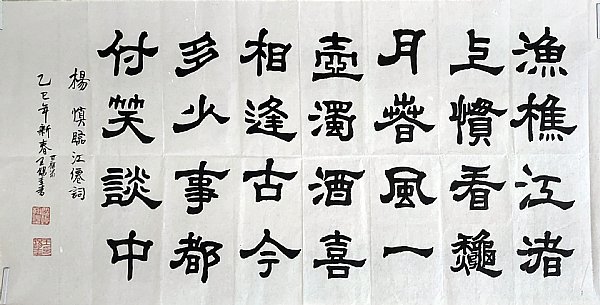 漁樵江渚
上慣看龝
月萅風一
壺濁酒喜
相逢古今
多少事都
付笑談中
楊慎臨江僊詞
乙巳年新春